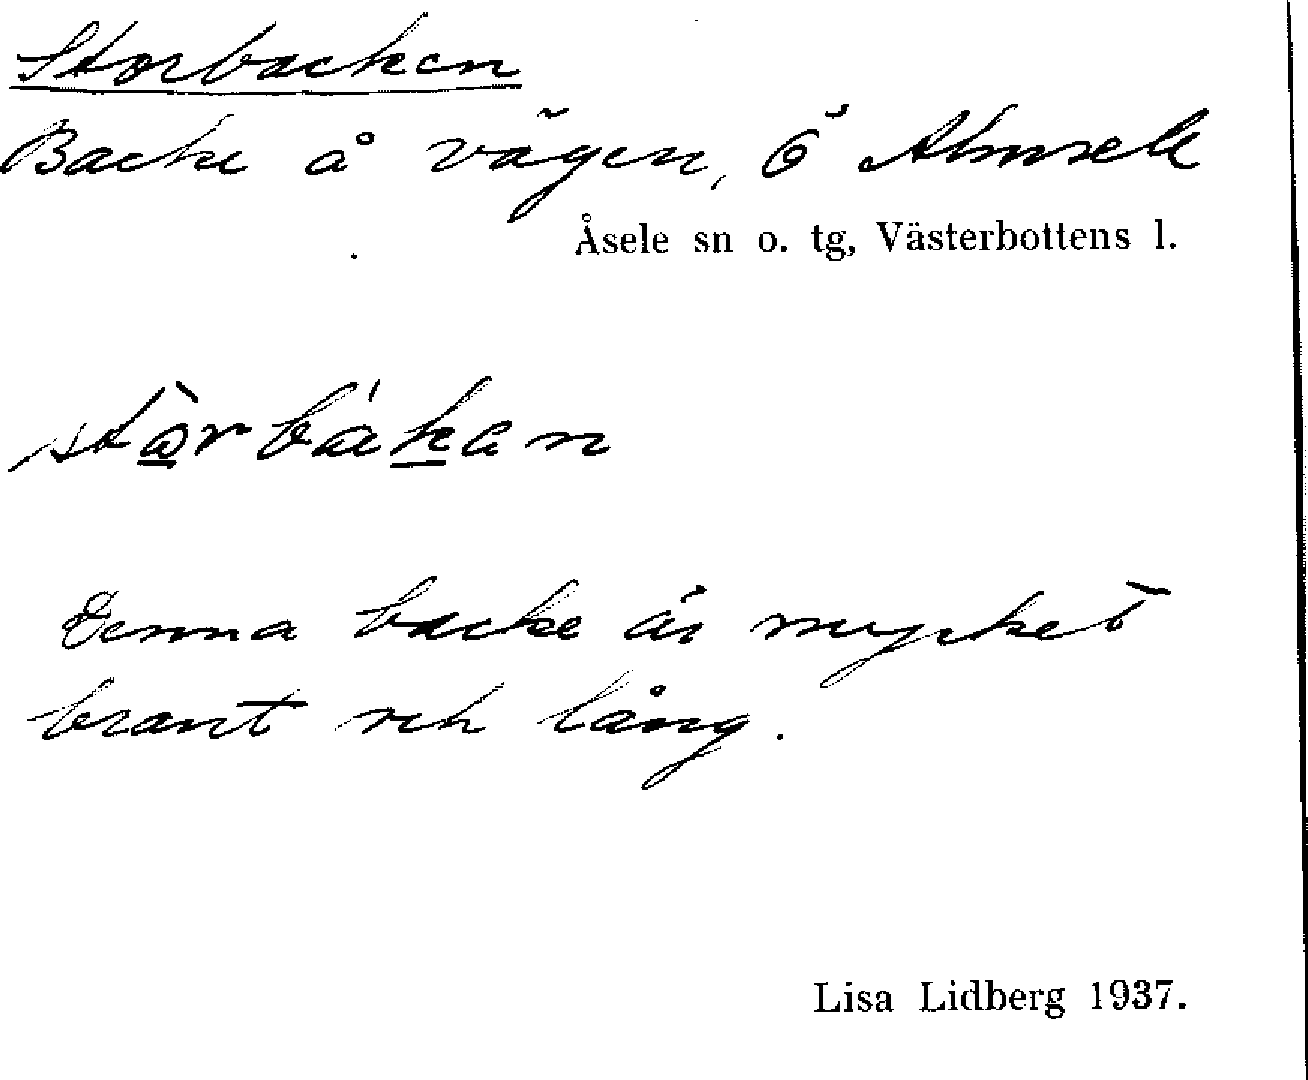 Storbacken
Backe å vägen, Ö Almsele
Åsele sn o. tg, Västerbottens l.
stò̲rbák̲an
Denna backe är mycket
brant och lång.
Lisa Lidberg 1937.